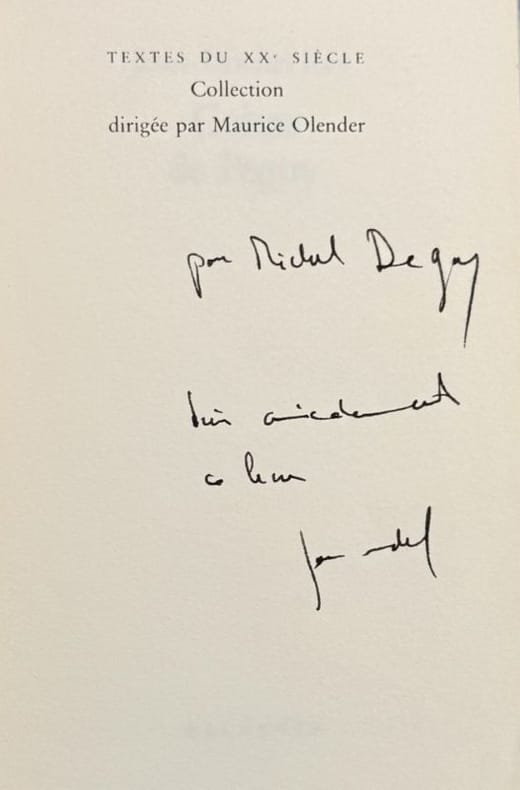 TEXTES DU XXᵉ SIÈCLE
Collection
dirigée par Maurice Olender
pour Michel Deguy
très amicalement
ce livre